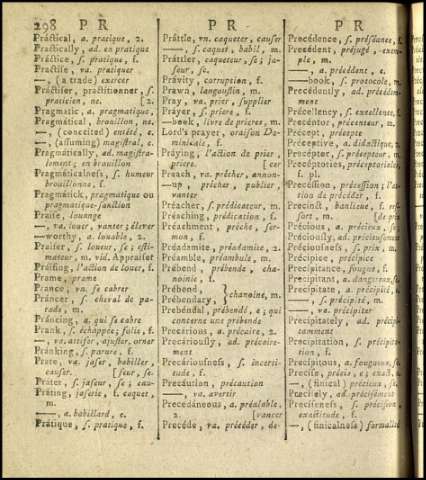 298 P R
P R
P R
Práctical, a. pratique, 2.
Practically, ad. en pratique
Práctice, s. pratique, f.
Practise, va. pratiquer
—, (a trade) exercer
Practiser, practitionner, s.
praticien, ne. [2.
Pragmatic, a. pragmatique,
Pragmátical, brouillon, ne.
—, (conceited) entêté, e.
—, (assuming) magistral, e.
Pragmátically, ad. magistralement;
en brouillon
Pragmáticalness, s. humeur
brouillonne, f.
Pragmátick, pragmatique ou
pragmatique-sanction
Praise, louange
—, va. louer, vanter; élever
—worthy, a. louable, 2.
Praiser, s. loueur, se; estimateur,
m. vid. Appraiser
Praising, l'action de louer, f.
Prame, prame
Prance, va. se cabrer
Prancer, s. cheval de parade,
m.
Prancing, a. qui se cabre
Prank, s. échappée; folie, f.
—, va. attifer, ajuster, orner
Pránking, s. parure, f.
Prate, va. jaser, babiller,
causer. [seur, se.
Prater, s. jaseur, se; cau-
Práting, jaserie, f. caquet,
m.
—, a. babillard, e.
Prátique, s. pratique, f.
Práttle, vn. caqueter, causer
—, s. caquet, babil, m.
Práttler, caqueteur, se; jaseur,
se.
Právity, corruption, f.
Prawn, langoustin, m.
Pray, va. prier, supplier
Prayer, s. priere, f.
—book, livre de prieres, m.
Lord's prayer, oraison Dominicale,
f.
Práying, l'action de prier,
priere. [cer
Preach, va. prêcher, annon-
—up, prêcher, publier,
vanter
Preacher, s. prédicateur, m.
Préaching, prédication, f.
Préachment, prêche, sermon,
f.
Préadamite, préadamite, 2.
Préamble, préambule, m.
Prébend, prébende, chanoinie,
f.
Prébend,
Prébendary, } chanoine, m.
Prébendal, prébendé, e; qui
concerne une prébende
Precárious, a. précaire, 2.
Precáriously, ad. précairement
Precáriousness, s. incertitude,
f.
Precáution, précaution
—, va. avertir
Precedáneous, a. préalable,
2. [vancer
Precéde, va. précéder, de-
Precédence, s. préséance, f.
Precédent, préjugé, exemple,
m.
—, a. précédent, e.
—book, s. protocole, m.
Precédently, ad. précédemment
Precéllency, s. excellence, f.
Precéntor, précenteur, m.
Précept, précepte
Précéptive, a. didactique, 2.
Precéptor, s. précepteur, m.
Precéptories, préceptoriales,
f. pl.
Precéssion, précession; l'action
de précéder, f.
Precinct, banlieue, f. ressort,
m. [de prix
Précious, a. précieux, se;
Préciously, ad. précieusement
Préciousness, s. prix, m.
Précipice, précipice
Precipitance, fougue, f.
Precipitant, a. dangereux, se.
Precipitate, a. précipité, e.
—, s. précipité, m.
—, va. précipiter
Precipitately, ad. précipitamment
Precipitation, s. précipitation,
f.
Precipitous, a. fougueux, se.
Precise, précis, e; exact, e.
—, (finical) précieux, se.
Precisely, ad. précisément
Preciseness, s. précision,
exactitude, f.
—, (finicalness) formalité